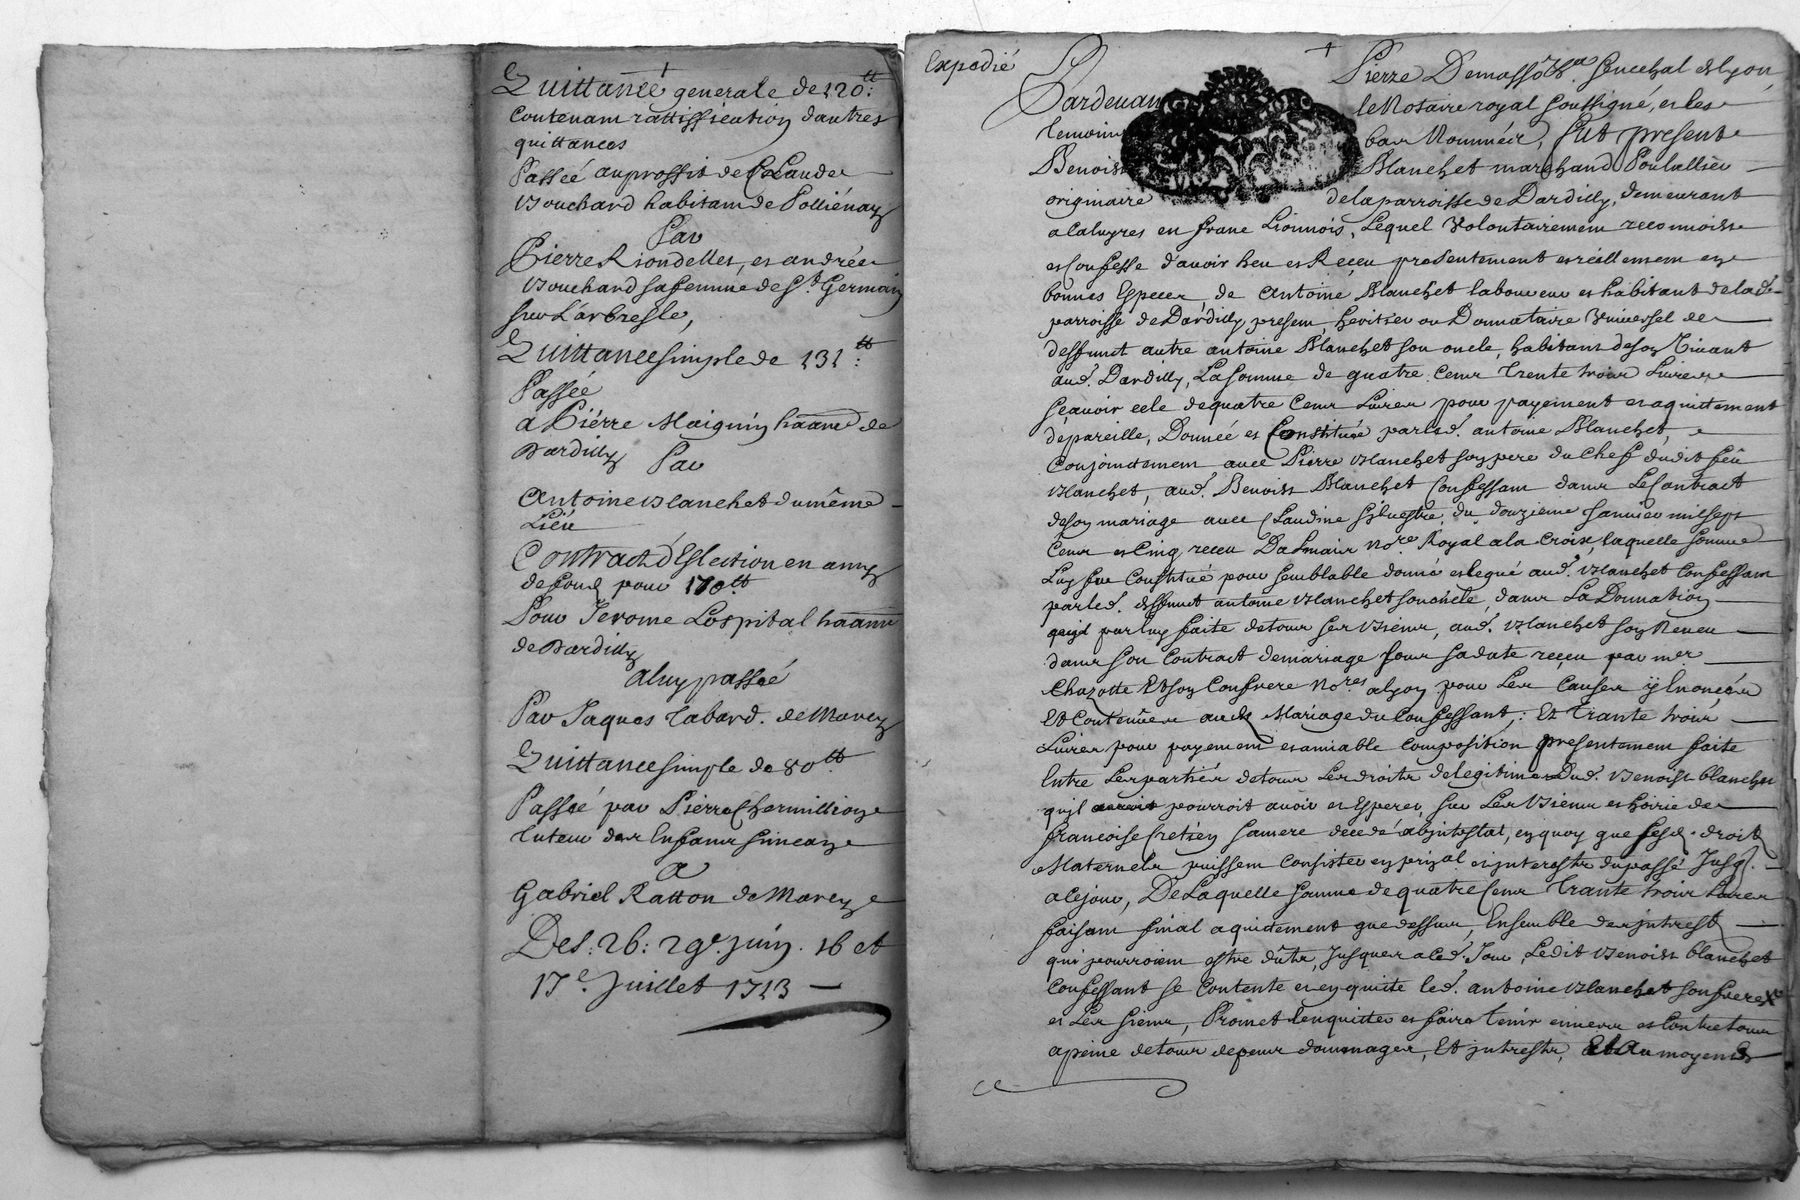 Quittance generale de 120:tt
Contenant rattiffication dautres
quittances
Passée au proffit de Claude
Bouchard habitant de Pollienay
Par
Pierre Riondelles, et andrée
Bouchard sa femme de St Germain
sur L'arbresle,
Quittance simple de 131:tt
Passée
a Piérre Maignin haant de
Dardilly Par
Antoine Blanchet du même
Lieu
Contract d'Eslection en amy
de fond pour 170tt
Pour Jerome Lospital haant
de Dardilly
a luy passée
Par Jaques Tabard. de Marcy
Quittance simple de 80tt
Passée par Piérre Chermillion
tuteur des Enfans
a
Gabriel Ratton de Marcy
Des. 26: 29e juin. 16 et
17e. Juillet 1713
Expedié
Pardevant Pierre Demasso Senechal de Lyon,
le Notaire royal soussigné, et les
temoins bas Nommés, fut present
Benoist Blanchet marchand Poulallier
originaire de la parroisse de Dardilly, demeurant
a Caluyres en franc Lionnois, Lequel Volontairement reconnoist
et Confesse d'avoir heu et Reçeu presentement et reellement en
bonnes Especes, de Antoine Blanchet laboureur et habitant de lad.
parroisse de Dardilly present, heritier ou Donnataire Universel de
deffunct autre antoine Blanchet son oncle, habitant de son Vivant
aud. Dardilly, La somme de quatre Cent Trente trois Livres
sçavoir celle de quatre Cent Livres pour payement et aquittement
de pareille, Donnée et Constituée par led. antoine Blanchet,
Conjointement avec Pierre Blanchet son pere du Chef dudit feu
Blanchet, aud. Benoist Blanchet Confessant dans Le Contract
de son mariage avec Claudine Silvestre, du douzieme Janvier mil sept
Cent et Cinq receu Dalmais Nore. Royal a la Croix, laquelle somme
Luy fut Constitué pour semblable donné et legué aud. Blanchet Confessant
par led. deffunct antoine Blanchet son oncle, dans La Donnation
quil par luy faite de tous ses Biens, aud. Blanchet son Neveu
dans son Contract de mariage sous sa date reçeu par mes.
Chazotte Et son Confrere Nores. a Lyon pour Les Causes y Enoncées
Et Contenues aud. Mariage du Confessant; Et Trante trois
Livres pour payement et amiable Composition presentement faite
Entre Les parties de tous Les droits de legitimes Dud. Benoist blanchet
quil pourroit avoir et Esperer, sur Les Biens et hoirie de
francoise Cretien sa mere decedé abjntestat, en quoy que sesd. droits
Maternels puissent Consister en prinpal et interests du passé Jusq.
a Ce jour, De Laquelle somme de quatre Cent Trante trois Livres
faisant final aquitement que dessus, Ensemble des jnterests
qui pourroient estre dûts, Jusques a Ced. Jour, Ledit Benoist blanchet
Confessant se Contente et en quitte led. antoine Blanchet son frere
et Les siens, Promet l'en quitter et faire tenir envers et Contre tous
a peine de tous depens dommages, Et jnterests, Et Au moyen